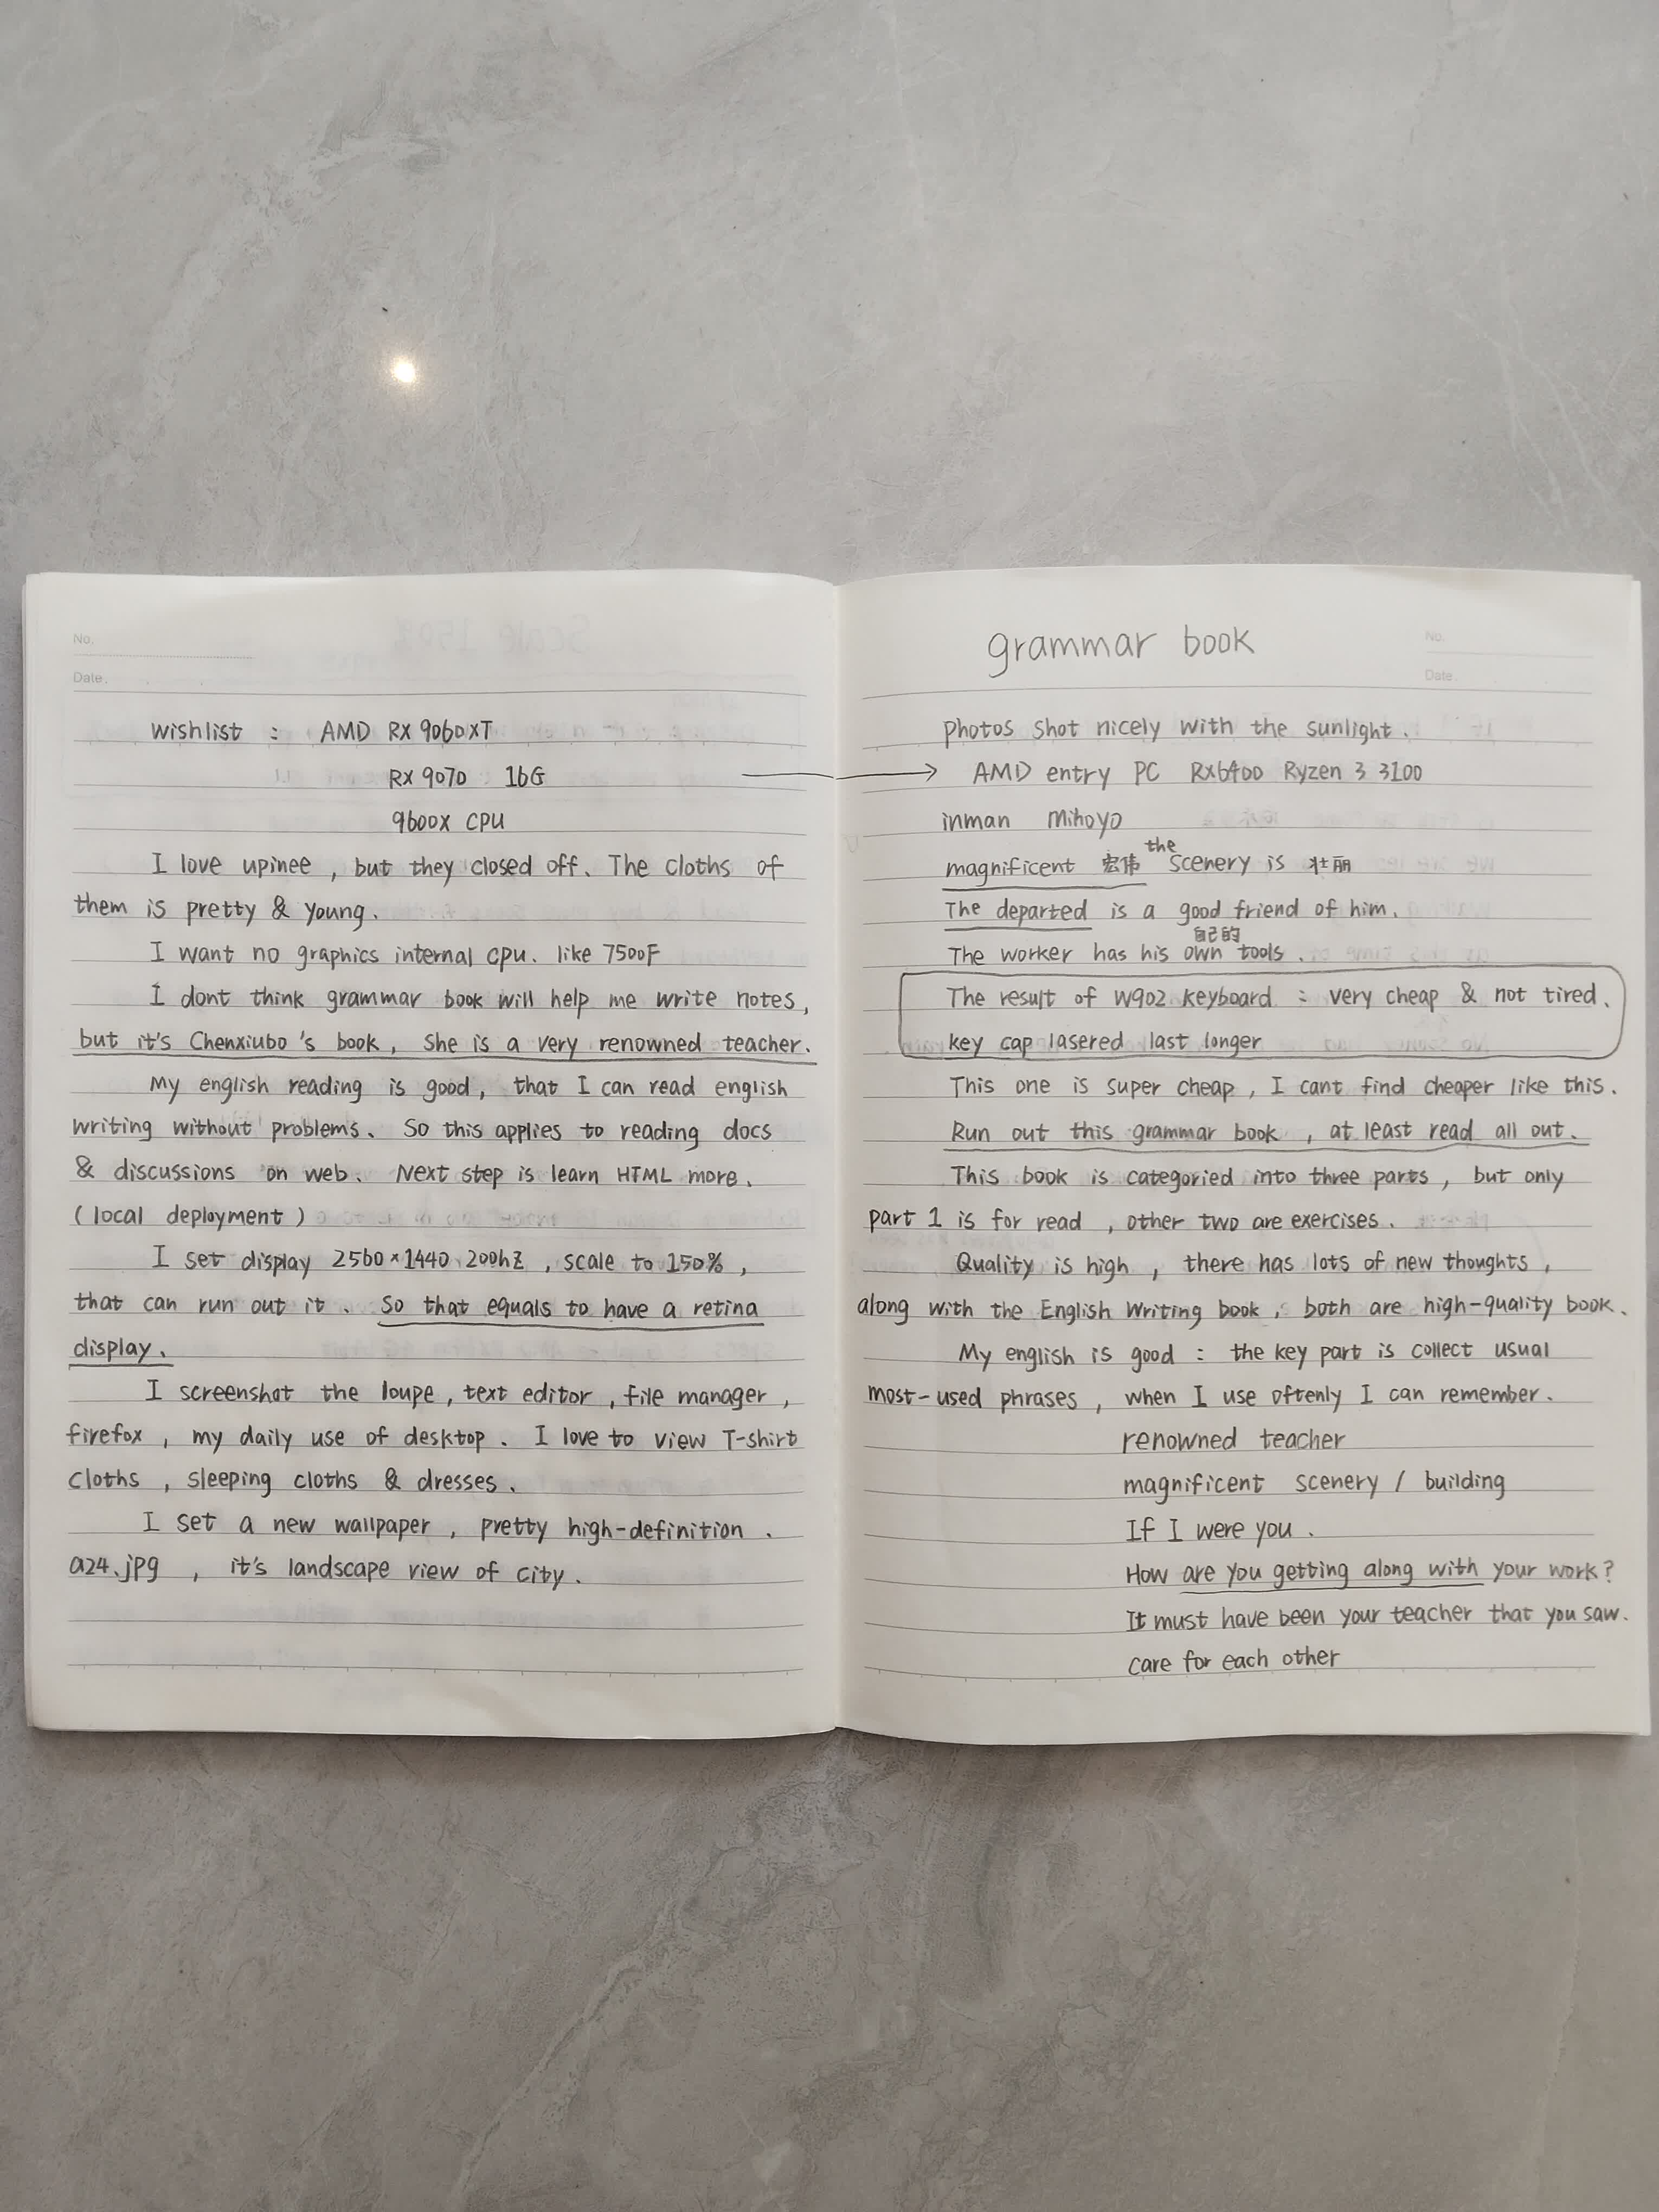 No.
Date.
wishlist : AMD RX 9060XT
RX 9070 16G
9600X CPU
I love upinee , but they closed off. The cloths of
them is pretty & young.
I want no graphics internal cpu. like 7500F
I dont think grammar book will help me write notes,
but it's Chenxiubo's book, She is a very renowned teacher.
My english reading is good, that I can read english
writing without problems. So this applies to reading docs
& discussions on web. Next step is learn HTML more.
(local deployment)
I set display 2560×1440 200hz , scale to 150% ,
that can run out it . So that equals to have a retina
display.
I screenshot the loupe, text editor, file manager,
firefox , my daily use of desktop. I love to view T-shirt
cloths , sleeping cloths & dresses.
I set a new wallpaper , pretty high-definition .
a24.jpg , it's landscape view of city.
grammar book
No.
Date.
Photos shot nicely with the sunlight.
→ AMD entry PC RX6400 Ryzen 3 3100
inman Mihoyo
magnificent 宏伟 the scenery is 壮丽
The departed is a good friend of him.
自己的
The worker has his own tools.
The result of W902 keyboard : very cheap & not tired.
key cap lasered last longer
This one is super cheap, I cant find cheaper like this.
Run out this grammar book , at least read all out.
This book is categoried into three parts, but only
part 1 is for read , other two are exercises.
Quality is high , there has lots of new thoughts ,
along with the English Writing book , both are high-quality book.
My english is good : the key part is collect usual
most-used phrases , when I use oftenly I can remember.
renowned teacher
magnificent scenery / building
If I were you.
How are you getting along with your work?
It must have been your teacher that you saw.
care for each other